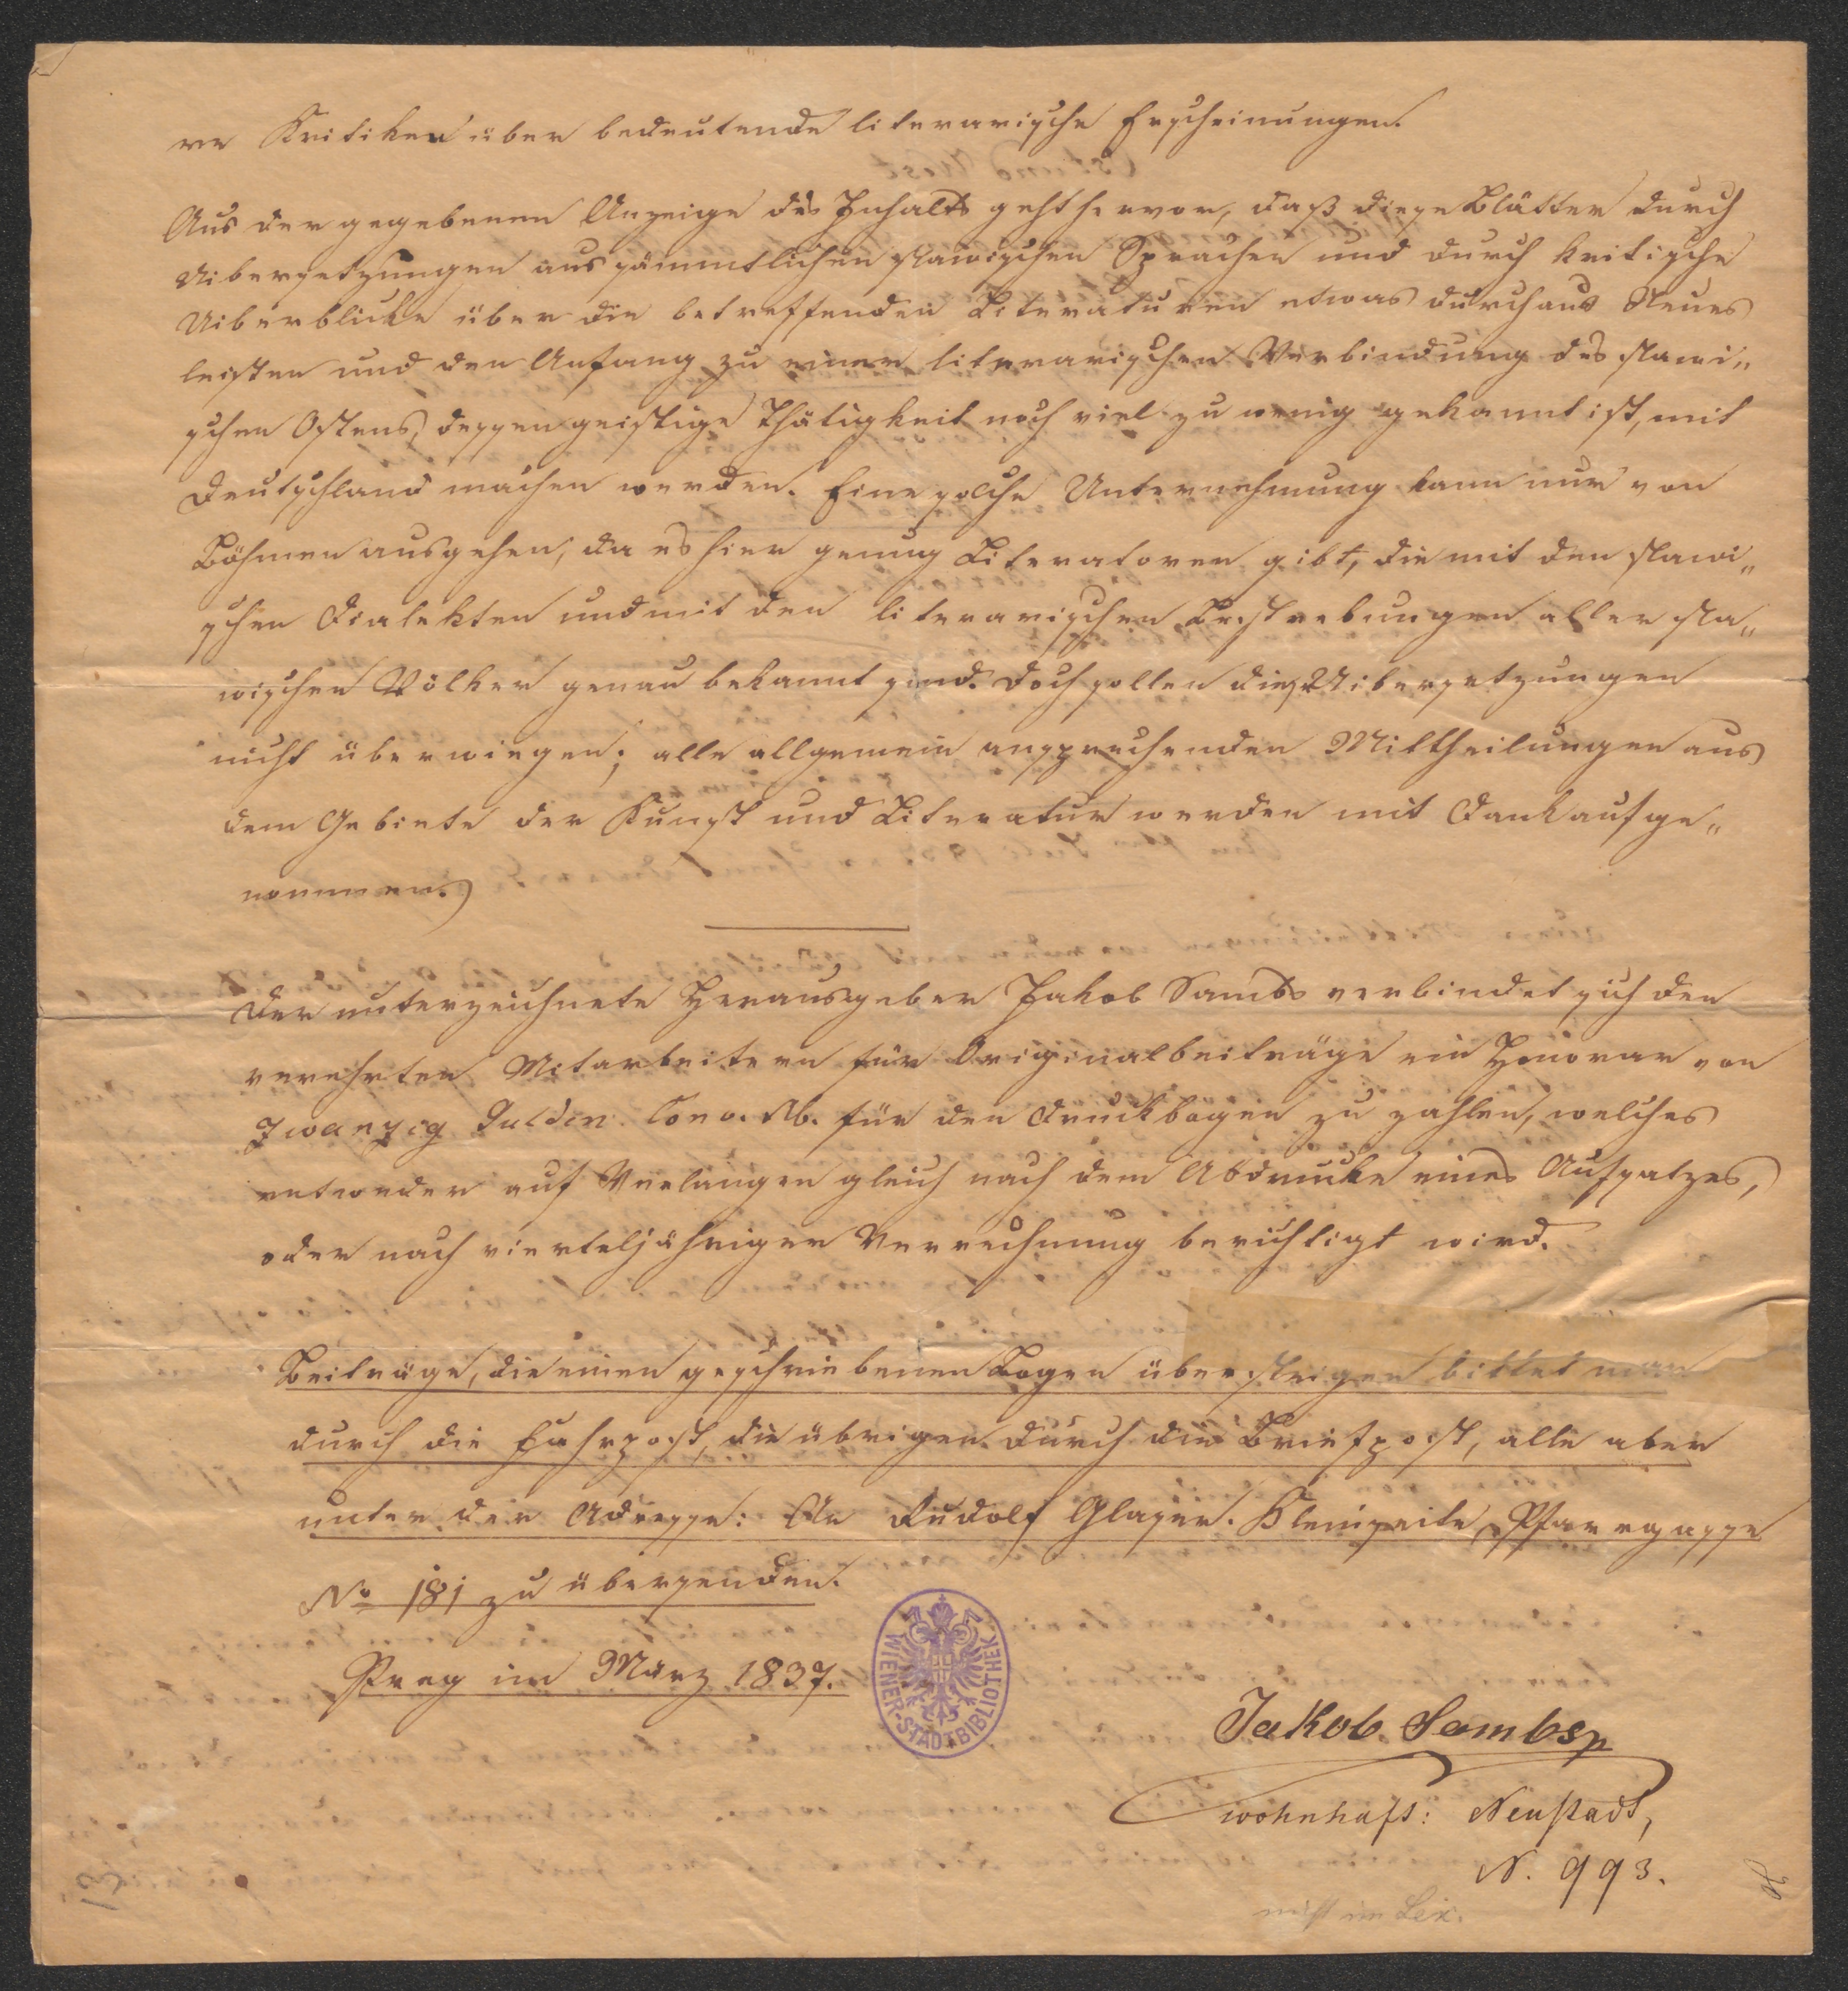 re Kritiken über bedeutende literarische Erscheinungen.
Aus der gegebenen Anzeige des Inhalts geht hervor, daß diese Blätter durch
Uibersetzungen aus sämmtlichen slawischen Sprachen und durch kritische
Uiberblicke über die betreffenden Literaturen etwas durchaus Neues
leisten und den Anfang zu einer literarischen Verbindung des slawi„
schen Ostens, dessen geistige Thätigkeit noch viel zu wenig gekannt ist, mit
Deutschland machen werden. Eine solche Unternehmung kann nur von
Böhmen ausgehen, da es hier genug Literatoren gibt, die mit den slawi„
schen Dialekten und mit den literarischen Bestrebungen aller sla„
wischen Völker genau bekannt sind. Doch sollen diese Uibersetzungen
nicht überwiegen; alle allgemein ansprechenden Mittheilungen aus
dem Gebiete der Kunst und Literatur werden mit Dank aufge„
nommen.
Der unterzeichnete Herausgeber Jakob Sambs verbindet sich den
verehrten Mitarbeitern für Originalbeiträge ein Honorar von
Zwanzig Gulden Conv. M. für den Druckbogen zu zahlen, welches
entweder auf Verlangen gleich nach dem Abdrucke eines Aufsatzes,
oder nach vierteljähriger Verrechnung berichtigt wird.
Beiträge, die einen geschriebenen Bogen übersteigen bittet man
durch die Fahrpost, die übrigen durch die Briefpost, alle aber
unter der Adresse: An Rudolf Glaser. Kleinseite, Pfarrgasse
No 181 zu übersenden.
Prag im März 1837.
WIENER-STADTBIBLIOTHEK
Jakob Sambs
wohnhaft: Neustadt,
N. 993.
nicht im Lex.
13